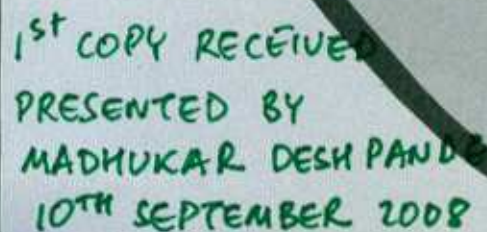 1st COPY RECEIVED
PRESENTED BY
MADHUKAR DESHPANDE
10TH SEPTEMBER 2008